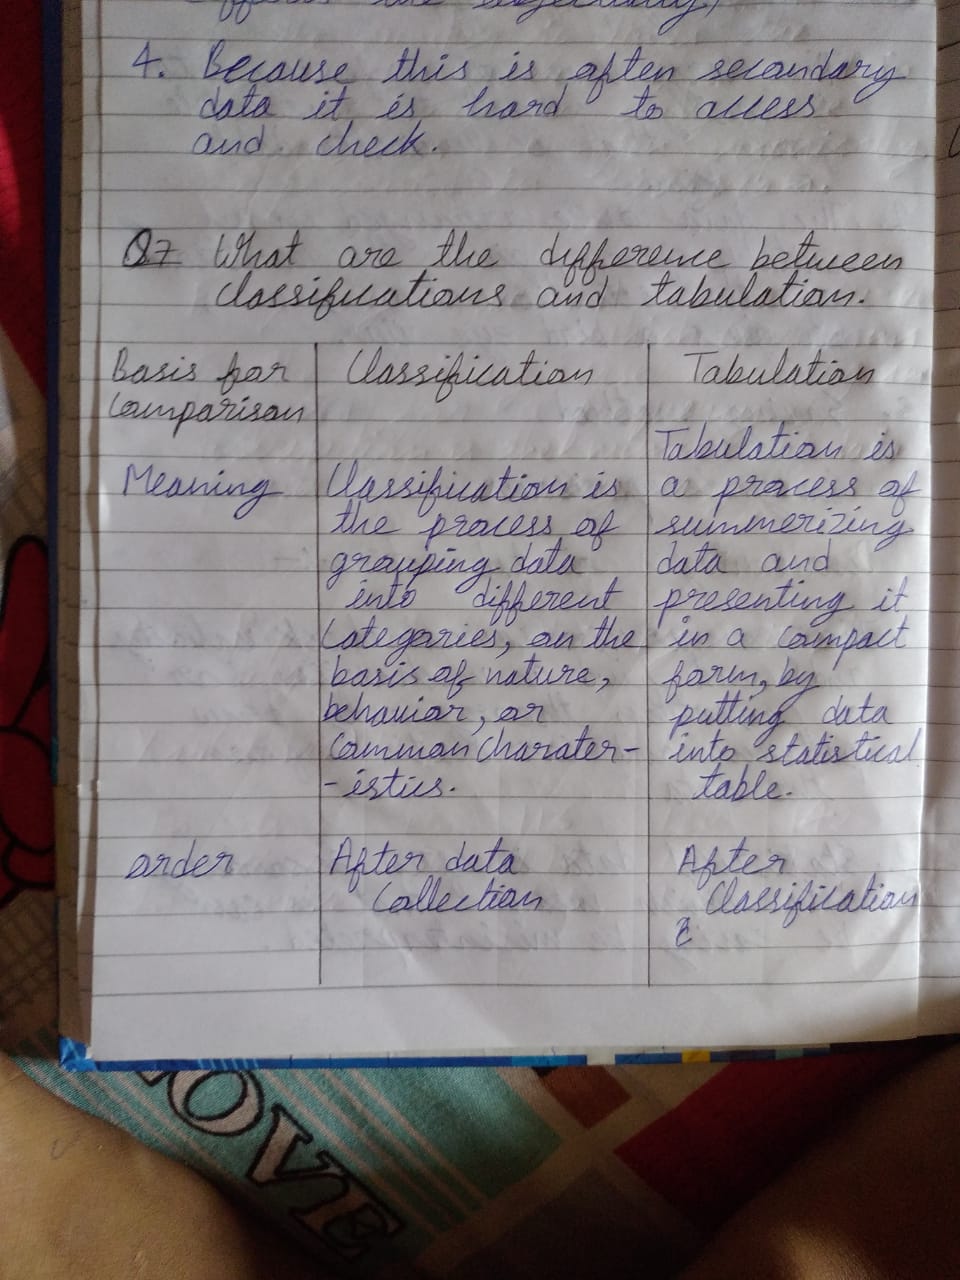 4. Because this is often secondary
data it is hard to access
and check.
Q7 What are the difference between
classifications and tabulation.
Basis for
Comparison
Classification
Tabulation
Meaning
Classification is
the process of
grouping data
into different
Categories, on the
basis of nature,
behavior, or
Common Charater-
-istics.
Tabulation is
a process of
summerizing
data and
presenting it
in a Compact
form, by
putting data
into statistical
table.
order
After data
Collection
After
Classification
LOVE